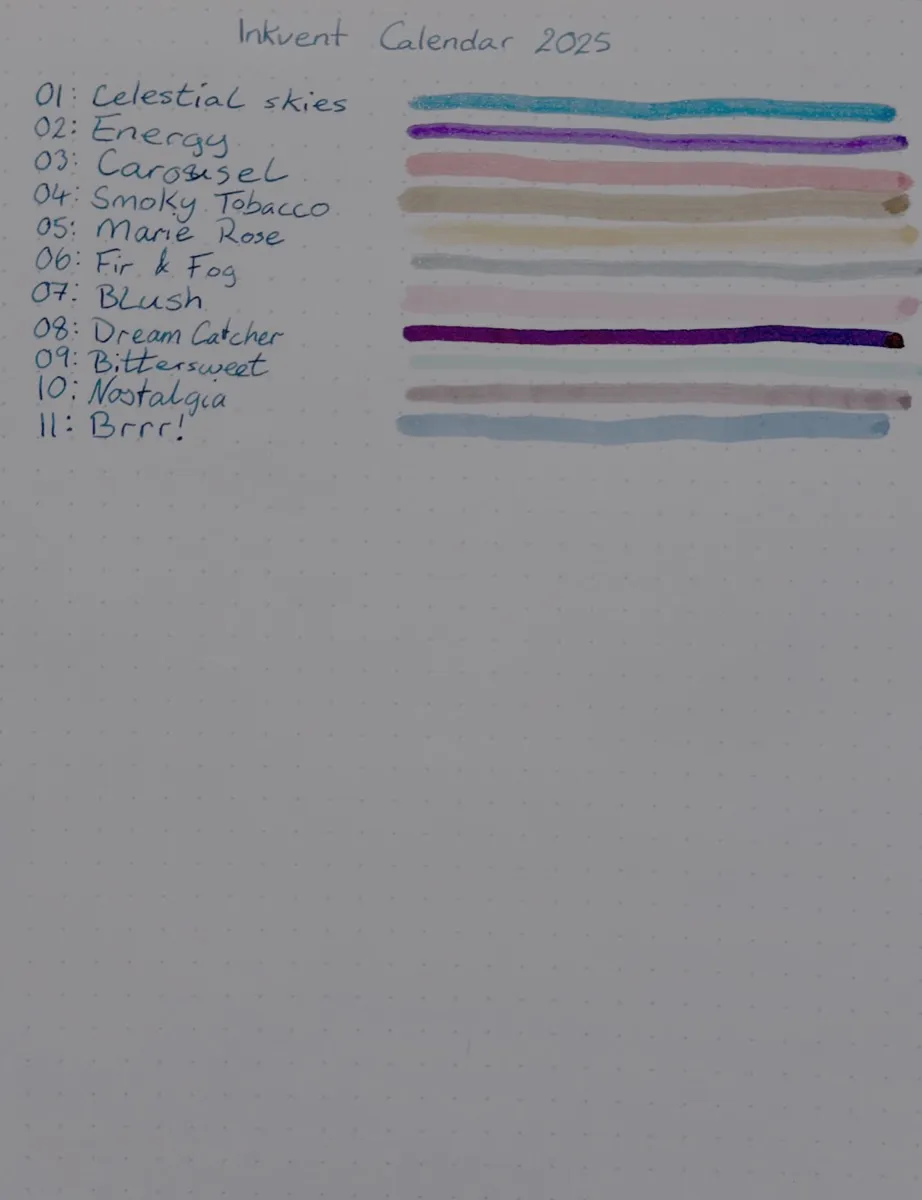 Inkvent Calendar 2025
01: Celestial skies
02: Energy
03: Carousel
04: Smoky Tobacco
05: Marie Rose
06: Fir & Fog
07: Blush
08: Dream Catcher
09: Bittersweet
10: Nostalgia
11: Brrr!